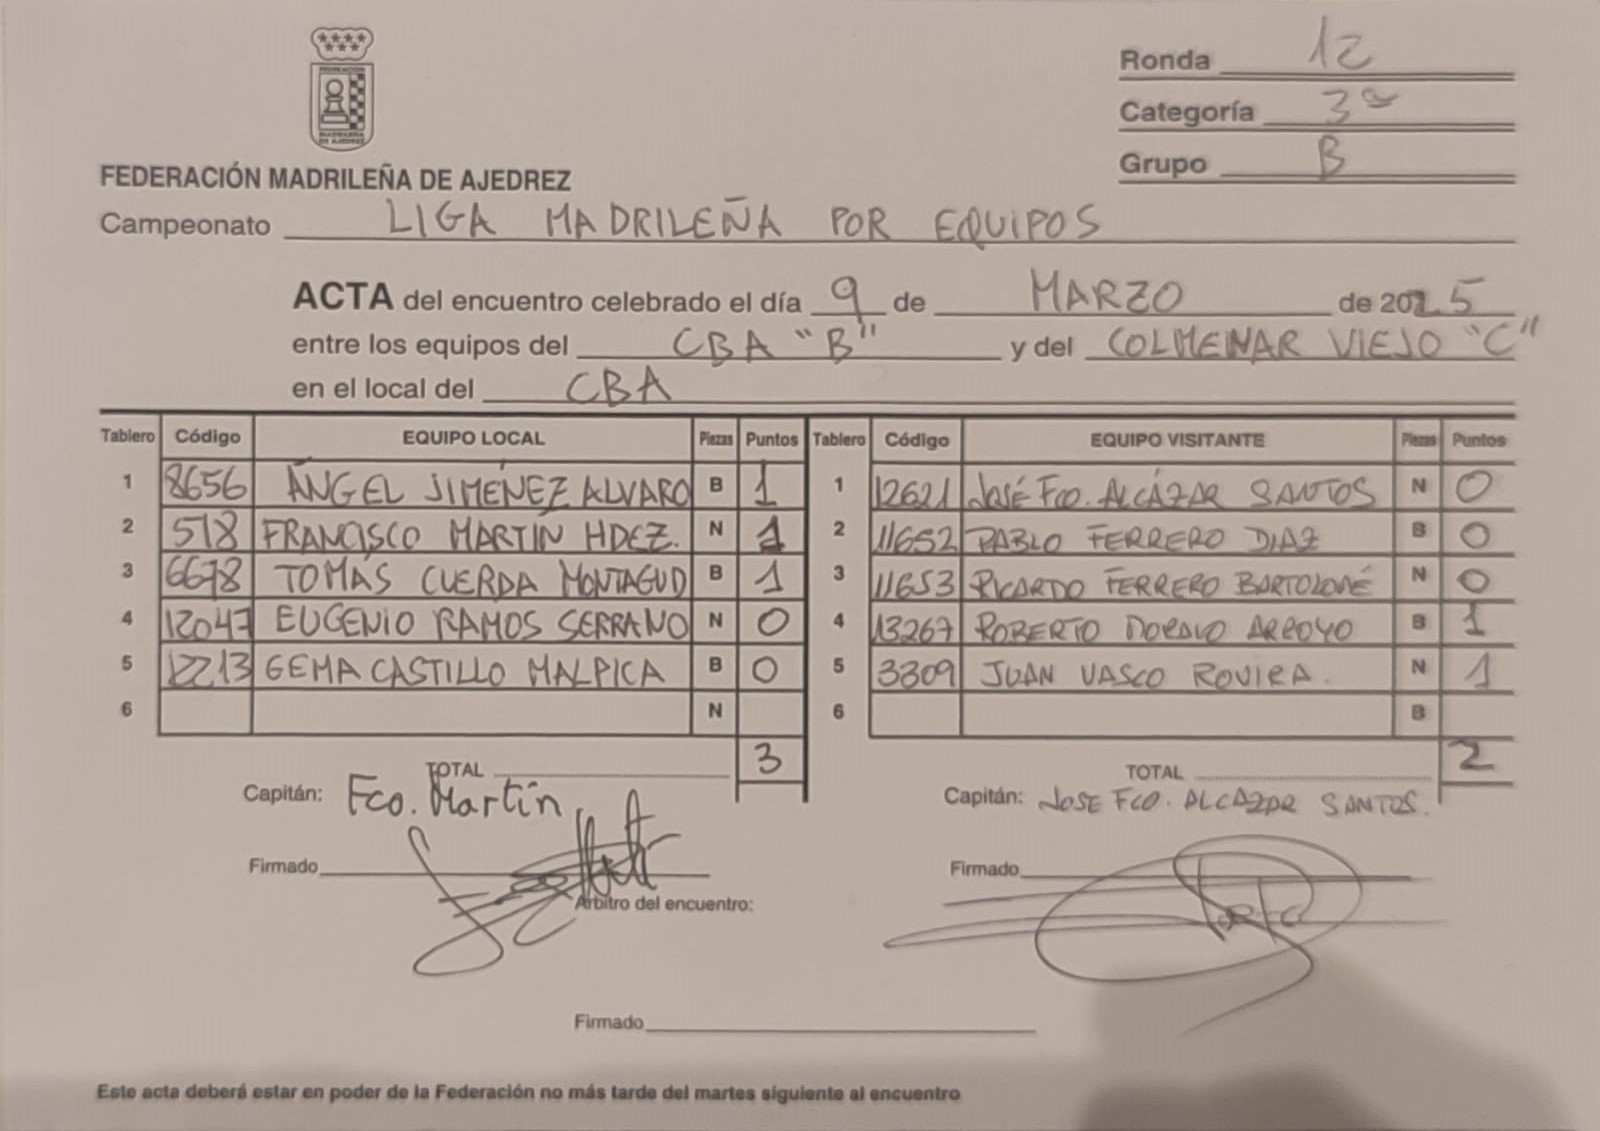 FEDERACIÓN
MADRILEÑA
DE AJEDREZ
Ronda 12
Categoría 3ª
Grupo B
FEDERACIÓN MADRILEÑA DE AJEDREZ
Campeonato LIGA MADRILEÑA POR EQUIPOS
ACTA del encuentro celebrado el día 9 de MARZO de 2025
entre los equipos del CBA "B" y del COLMENAR VIEJO "C"
en el local del CBA
Tablero Código EQUIPO LOCAL Piezas Puntos Tablero Código EQUIPO VISITANTE Piezas Puntos
1 8656 ÁNGEL JIMÉNEZ ALVARO B 1 1 12621 JOSÉ FCO. ALCÁZAR SANTOS N 0
2 518 FRANCISCO MARTIN HDEZ. N 1 2 11652 PABLO FERRERO DIAZ B 0
3 6678 TOMÁS CUERDA MONTAGUD B 1 3 11653 RICARDO FERRERO BARTOLOMÉ N 0
4 12047 EUGENIO RAMOS SERRANO N 0 4 13267 ROBERTO ARROYO B 1
5 12213 GEMA CASTILLO MALPICA B 0 5 3309 JUAN VASCO ROVIRA. N 1
6 N 6 B
TOTAL 3 TOTAL 2
Capitán: Fco. Martín Capitán: JOSE FCO. ALCAZAR SANTOS.
Firmado Firmado
Arbitro del encuentro:
Firmado
Este acta deberá estar en poder de la Federación no más tarde del martes siguiente al encuentro